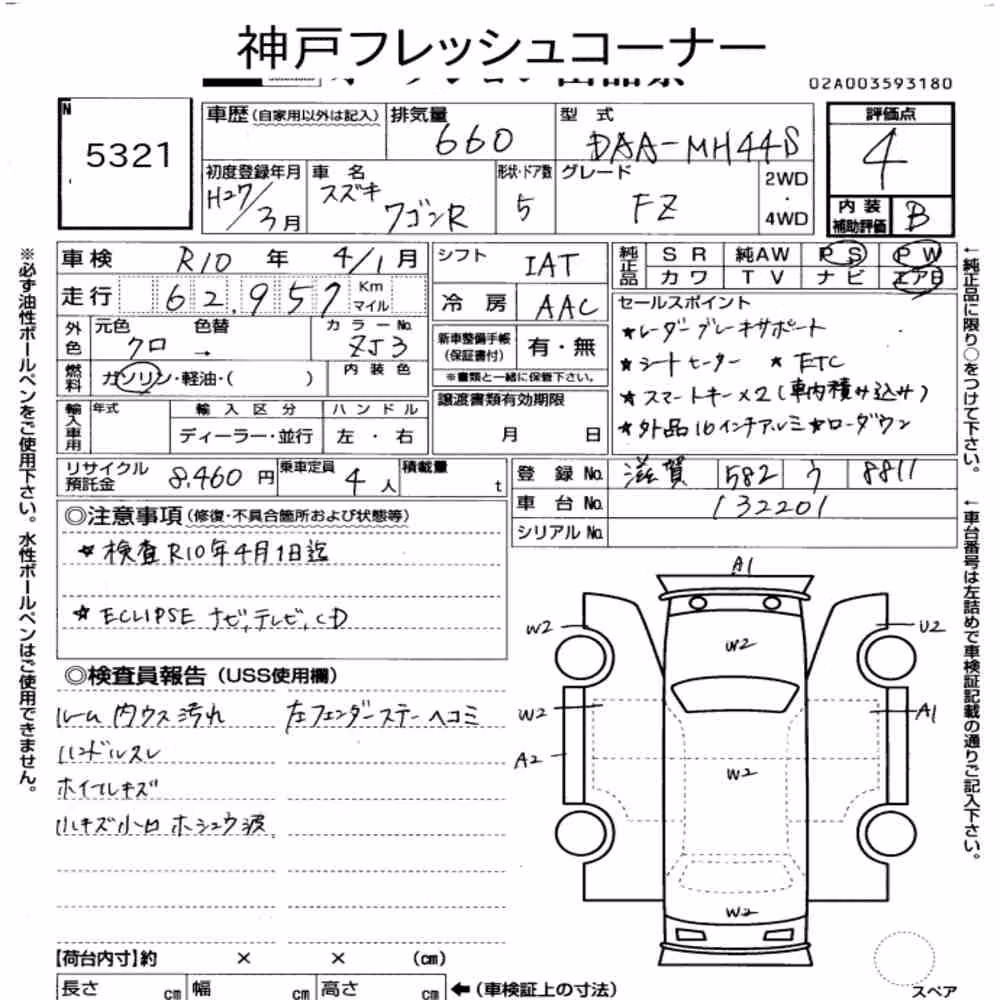 神戸フレッシュコーナー
02A003593180
N
5321
車歴 (自家用以外は記入) 排気量 660 型式 DAA-MH44S 評価点 4
初度登録年月 H27/3月 車名 スズキ ワゴンR 形状・ドア数 5 グレード FZ 2WD ・ 4WD
内装補助評価 B
車検 R10年 4/1月 シフト IAT 純正品 SR 純AW PS PW
走行 62,957 Km マイル 冷房 AAC カワ TV ナビ エアB
外色 元色 クロ 色替 → カラーNo. ZJ3 新車整備手帳(保証書付) 有・無 ※書類と一緒に保管下さい。
燃料 ガソリン・軽油・( ) 内装色
輸入車用 年式 輸入区分 ディーラー・並行 ハンドル 左・右
譲渡書類有効期限 月 日
セールスポイント
★レーダーブレーキサポート
★シートヒーター ★ETC
★スマートキー×2(車内積み込み)
★外品16インチアルミ ★ローダウン
リサイクル預託金 8,460円 乗車定員 4人 積載量 t
登録No. 滋賀 582 ウ 8811
車台No. 132201
シリアルNo.
◎注意事項(修復・不具合箇所および状態等)
★検査R10年4月1日迄
★ECLIPSE ナビ,テレビ,CD
◎検査員報告(USS使用欄)
ルーム内ウス汚れ 左フェンダーステーヘコミ
ハンドルスレ
ホイールキズ
小キズ小凹 ホシュウ波
A1
W2 W2 U2
W2 A1
A2 W2
W2
【荷台内寸】約 × × (cm)
長さ cm 幅 cm 高さ cm ←(車検証上の寸法)
スペア
※必ず油性ボールペンをご使用下さい。水性ボールペンはご使用できません。
←純正品に限り○をつけて下さい。
←車台番号は左詰めで車検証記載の通りご記入下さい。